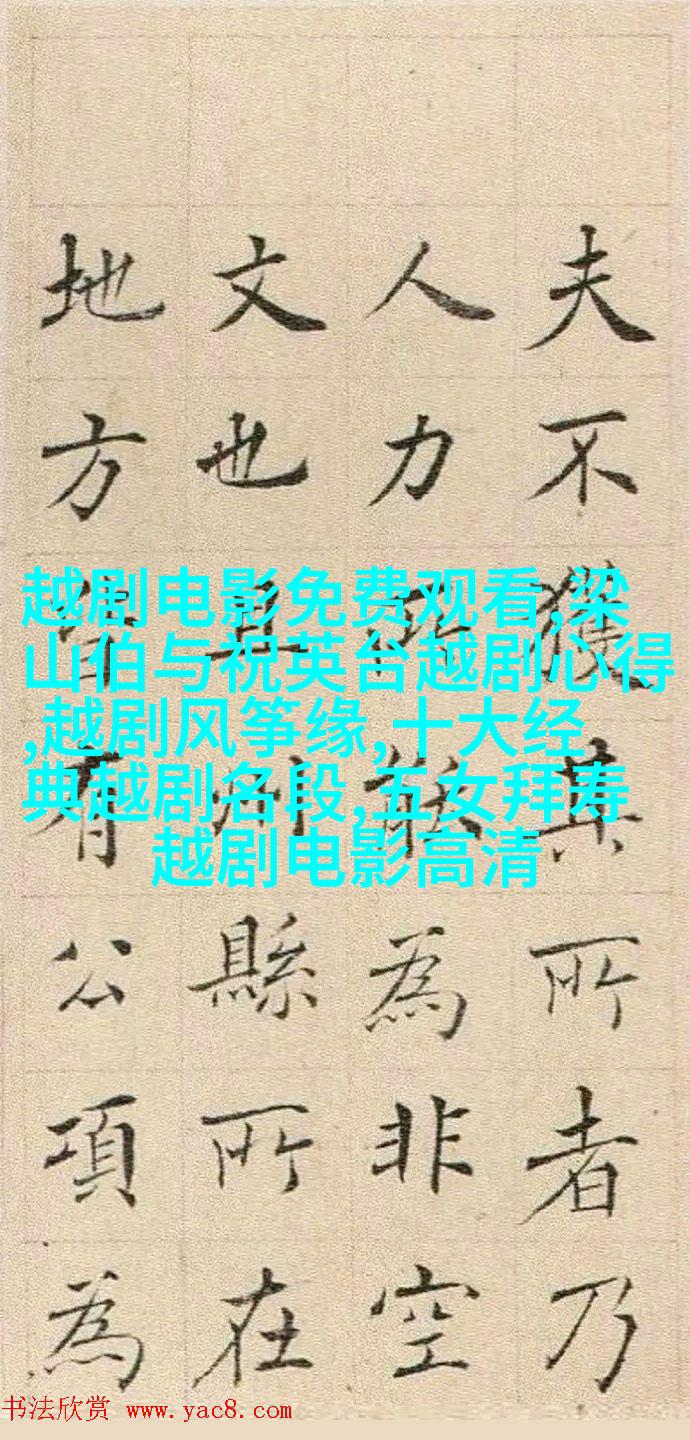 夫不獲其所者乃
人力所能為非空
文也且州縣所在
地方皆有公項為
越剧电影免费观看,梁
山伯与祝英台越剧心得
,越剧风筝缘,十大经
典越剧名段,五女拜寿
越剧电影高清
书法欣赏 www.yac8.com